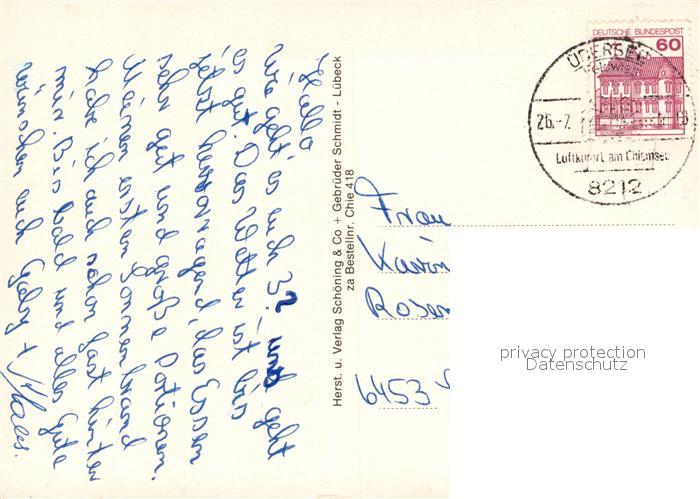 Hallo
Wie geht's euch 3? uns geht
es gut. Das Wetter ist bis
jetzt hervorragend, das Essen
sehr gut und große Portionen.
Meinen ersten Sonnenbrand
habe ich auch schon fast hinter
mir. Bis bald und alles Gute
wünschen euch Gaby +
Herst. u. Verlag Schöning & Co + Gebrüder Schmidt - Lübeck
za Bestellnr. Chie 418
DEUTSCHE BUNDESPOST
60
ÜBERSEE
26.-7.
Luftkurort am Chiemsee
8212
Frau
Karin
Rosen
6453
privacy protection
Datenschutz